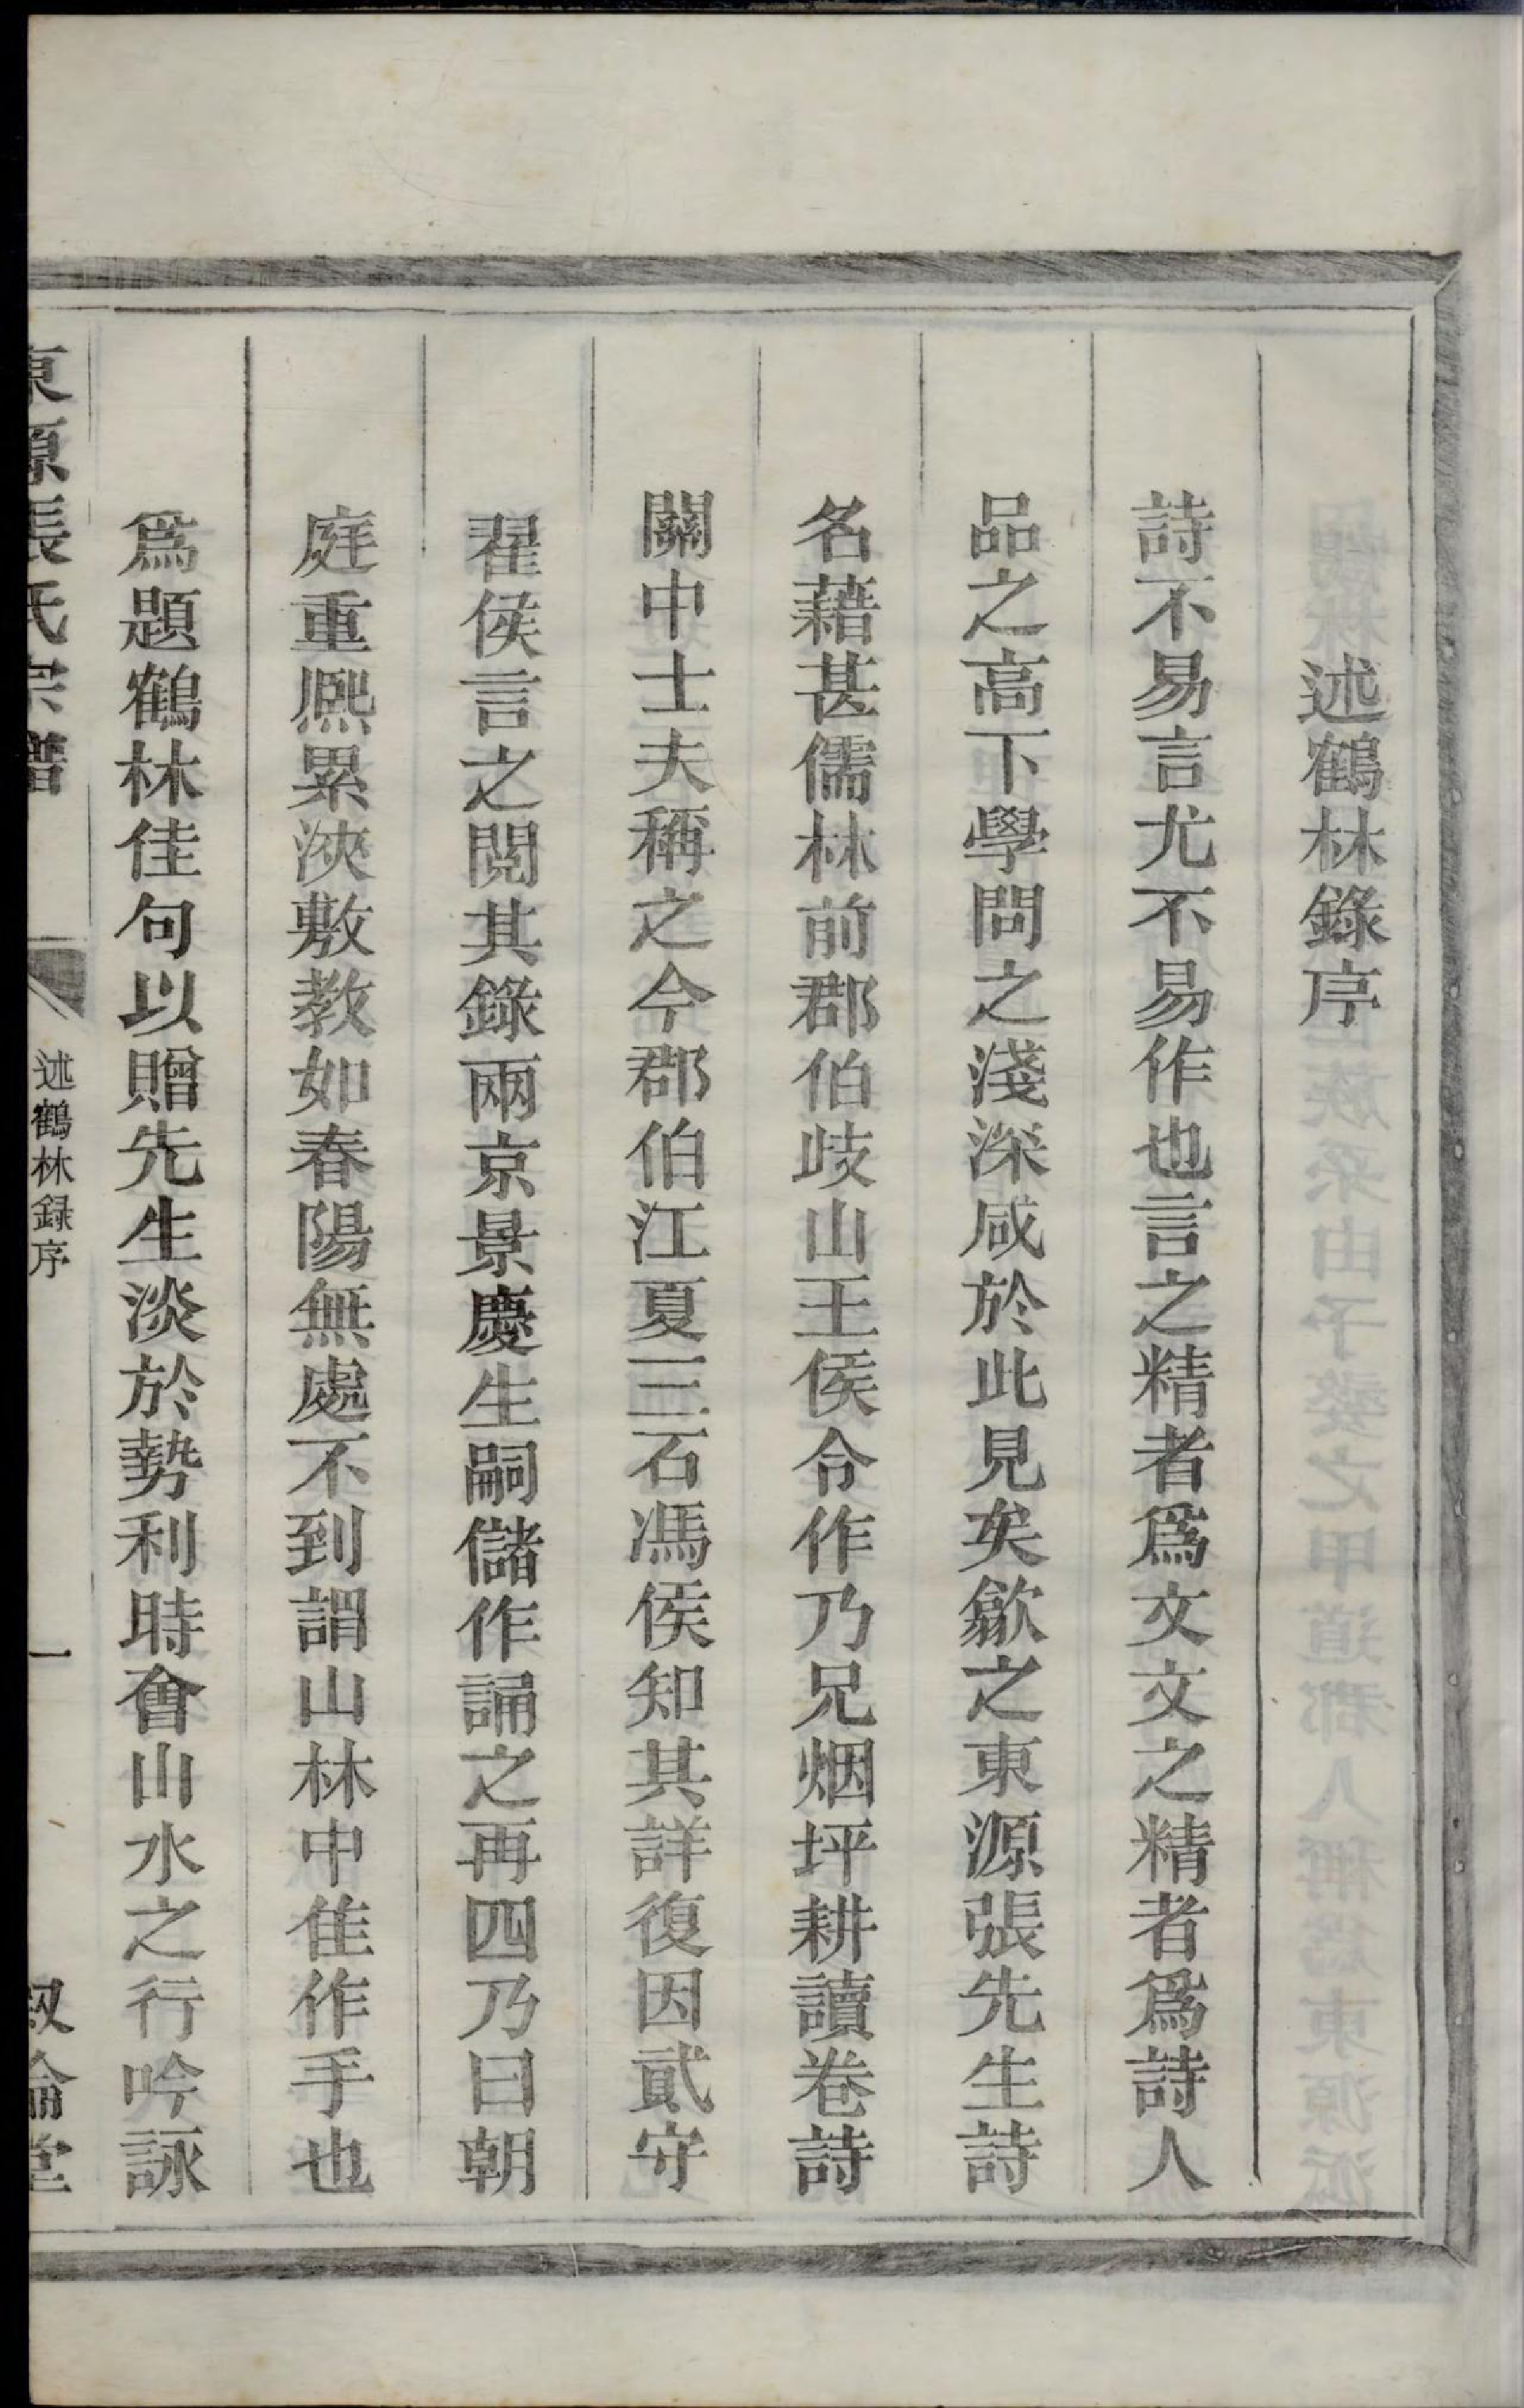 述鶴林錄序
詩不易言尤不易作也言之精者爲文文之精者爲詩人
品之高下學問之淺深咸於此見矣歙之東源張先生詩
名藉甚儒林前郡伯歧山王侯令作乃兄烟坪耕讀卷詩
關中士夫稱之今郡伯江夏三石馮侯知其詳復因貳守
翟侯言之閱其錄兩京景慶生嗣儲作誦之再四乃曰朝
庭重熈累浹敷教如春陽無處不到謂山林中隹作手也
爲題鶴林佳句以贈先生淡於勢利時會山水之行吟詠
東源張氏宗譜
述鶴林録序
一
敘倫堂